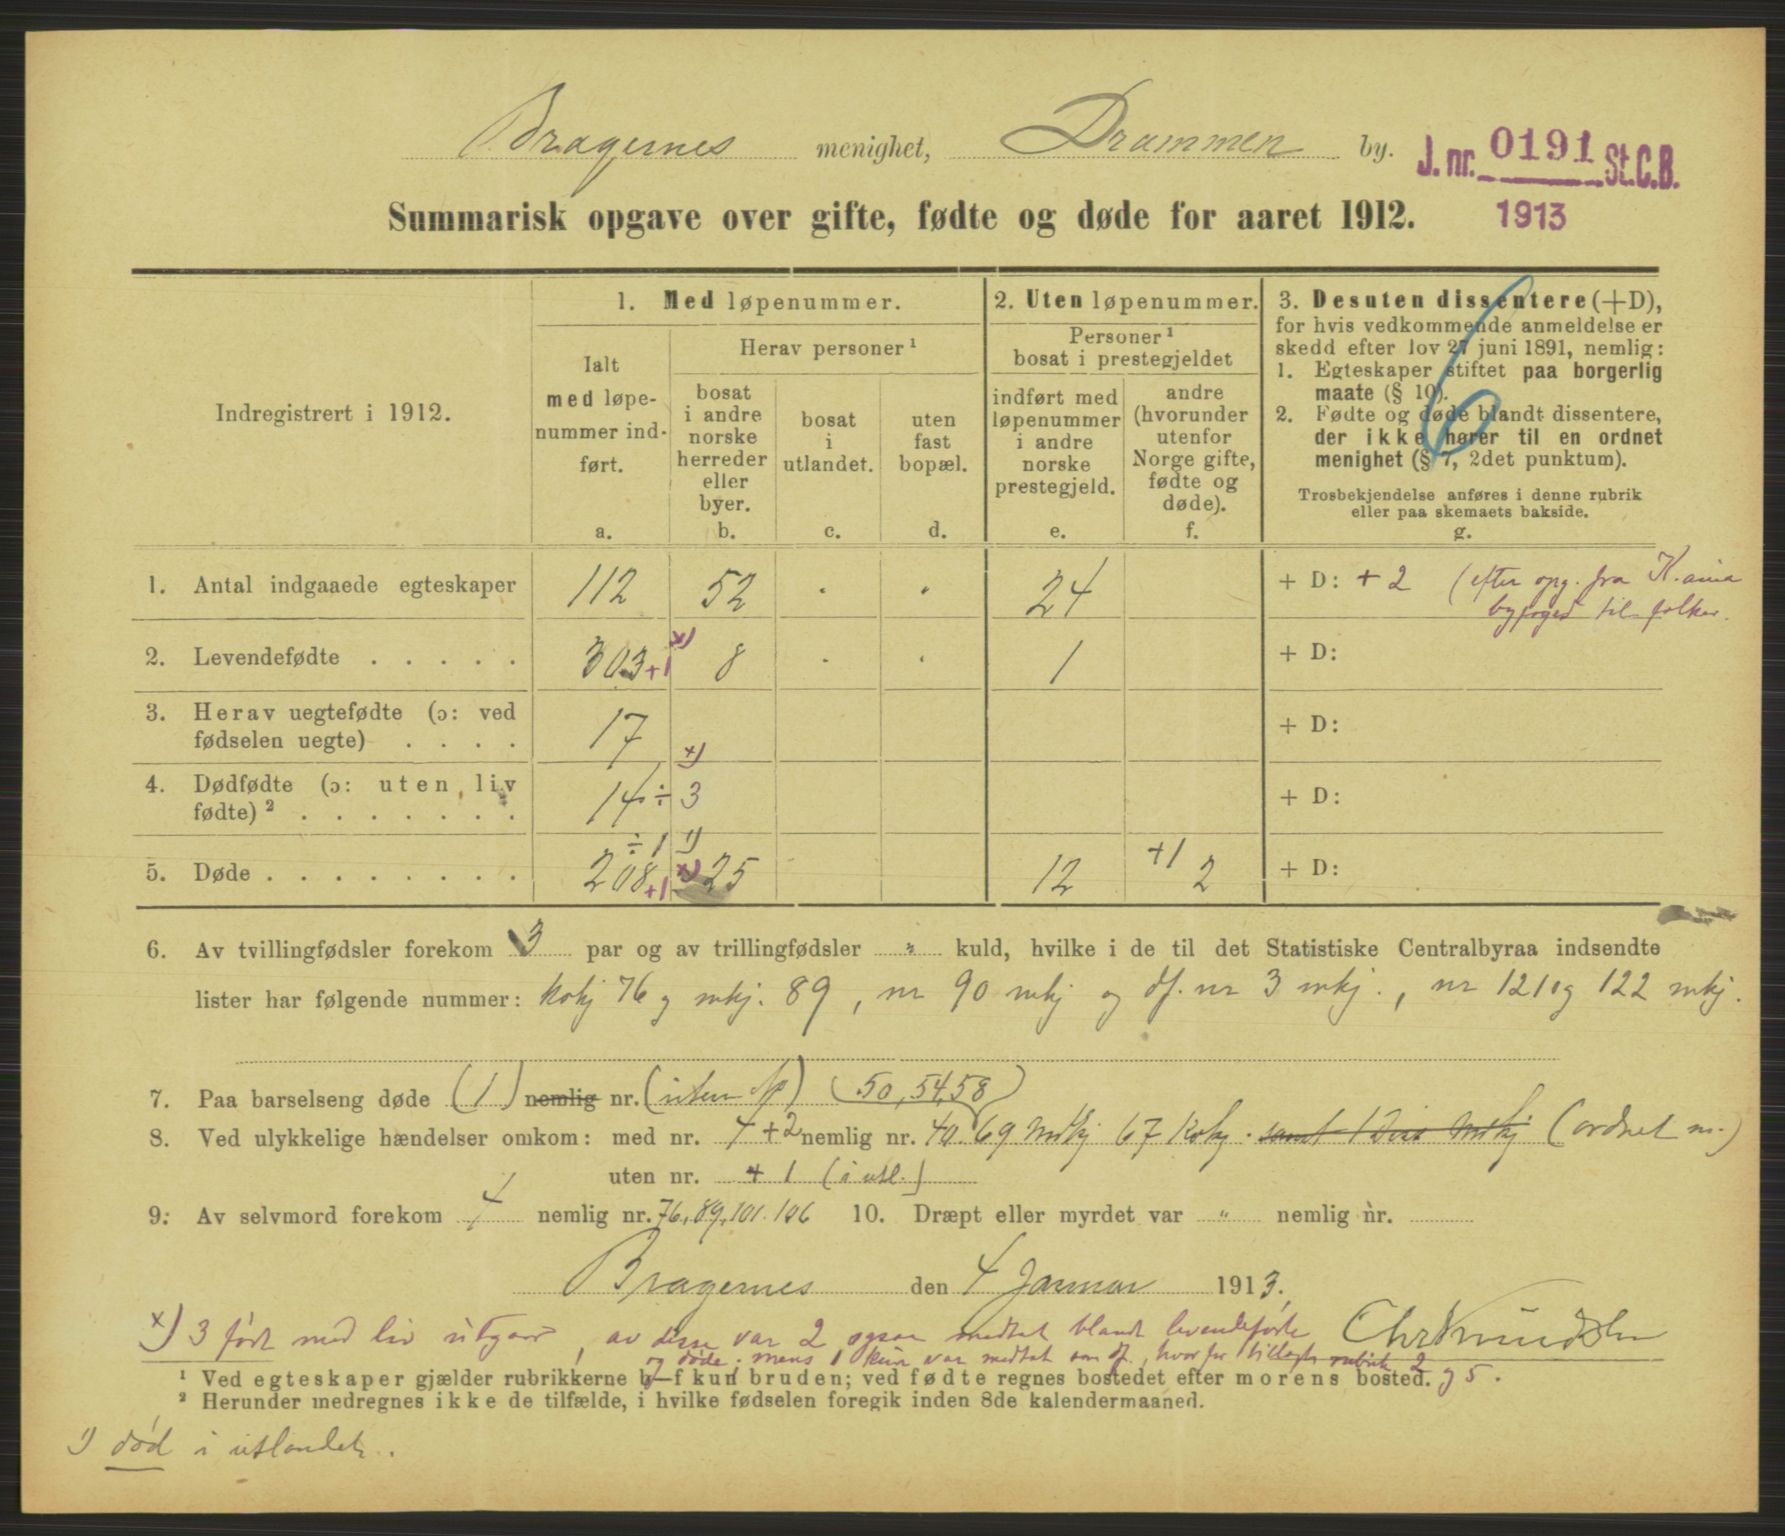 Bragernes menighet, Drammen by. J. nr. 0191 St.C.B.
1913
Summarisk opgave over gifte, fødte og døde for aaret 1912.
Indregistrert i 1912.
1. Med løpenummer.
Ialt
med løpe-
nummer ind-
ført.
a.
Herav personer ¹
bosat
i andre
norske
herreder
eller
byer.
b.
bosat
i
utlandet.
c.
uten
fast
bopæl.
d.
2. Uten løpenummer.
Personer ¹
bosat i prestegjeldet
indført med
løpenummer
i andre
norske
prestegjeld.
e.
andre
(hvorunder
utenfor
Norge gifte,
fødte og
døde).
f.
3. Desuten dissentere (+D),
for hvis vedkommende anmeldelse er
skedd efter lov 27 juni 1891, nemlig:
1. Egteskaper stiftet paa borgerlig
maate (§ 10).
2. Fødte og døde blandt dissentere,
der ikke hører til en ordnet
menighet (§ 7, 2det punktum).
Trosbekjendelse anføres i denne rubrik
eller paa skemaets bakside.
g.
1. Antal indgaaede egteskaper 112 52 " " 24 + D: + 2 (efter opg. fra K.ania
byfoged til folket.
2. Levendefødte . . . . . 303 +1 x) 8 " " 1 + D:
3. Herav uegtefødte (ɔ: ved
fødselen uegte) . . . . 17 + D:
4. Dødfødte (ɔ: uten liv
fødte) ² . . . . . . . 14 ÷ 3 x) + D:
÷ 1 ¹)
5. Døde . . . . . . . . . 208 +1 x) 25 12 +1 2 + D:
6. Av tvillingfødsler forekom 3 par og av trillingfødsler " kuld, hvilke i de til det Statistiske Centralbyraa indsendte
lister har følgende nummer: kvkj 76 og mkj. 89, nr 90 mkj og df. nr 3 mkj., nr 121 og 122 mkj.
7. Paa barselseng døde (1) nemlig nr. (uten ) (50, 54, 58)
8. Ved ulykkelige hændelser omkom: med nr. 4 + 2 nemlig nr. 40 69 Mdkj 67 Kvkj. samt 1 Mdkj (ordnet m.)
uten nr. + 1 (i utl.)
9. Av selvmord forekom 4 nemlig nr. 76, 89, 101. 106 10. Dræpt eller myrdet var " nemlig nr.
Bragernes den 4 Januar 1913.
x) 3 født med liv utgaar, av disse var 2 ogsaa medtat blandt levendefødte Chr Knudsen
og døde; mens 1 kun var medtat som df., hvorfor tillagt rubrik 2 og 5.
¹ Ved egteskaper gjælder rubrikkerne b—f kun bruden; ved fødte regnes bostedet efter morens bosted.
² Herunder medregnes ikke de tilfælde, i hvilke fødselen foregik inden 8de kalendermaaned.
¹) død i utlandet.